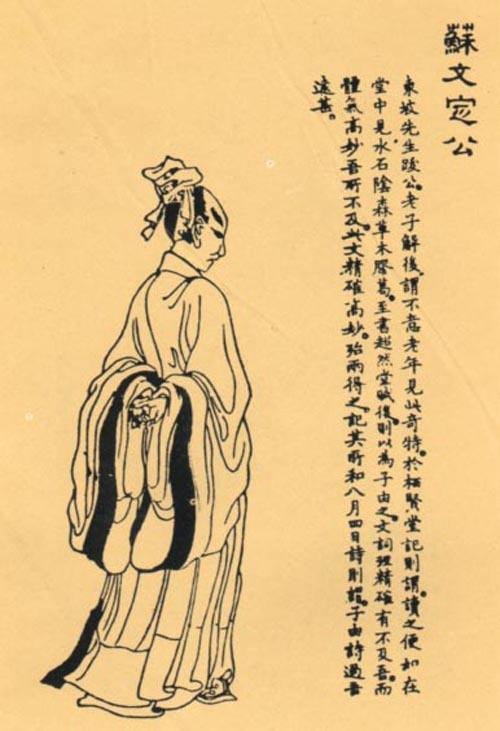 蘇文定公
東坡先生跋公。老子解後。謂不意老年見此奇特。於栖賢堂記則謂。讀之便如在
堂中見水石陰森草木膠葛。至書超然堂賦後。則以為子由之文詞理精確有不及吾。而
體氣高妙吾所不及。此文精確高妙。殆兩得之。記其所和八月四日詩則謂。子由詩過吾
遠甚。